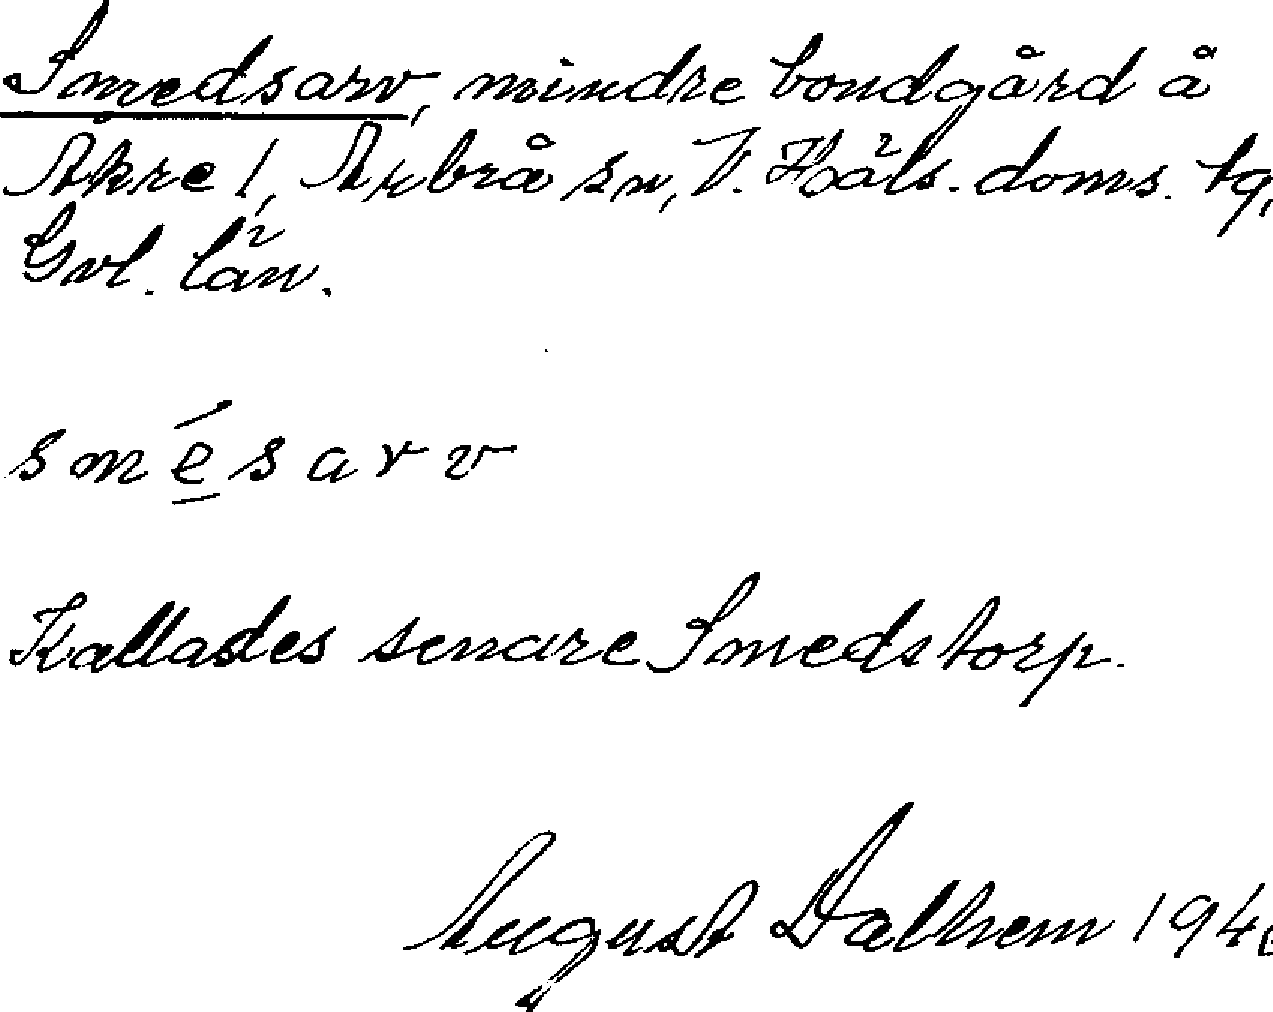 Smedsarv, mindre bondgård å
Åkre 1, Arbrå sn, V. Häls. doms. tg,
Gvl. län.
smésarv
Kallades senare Smedstorp.
August Dalhem